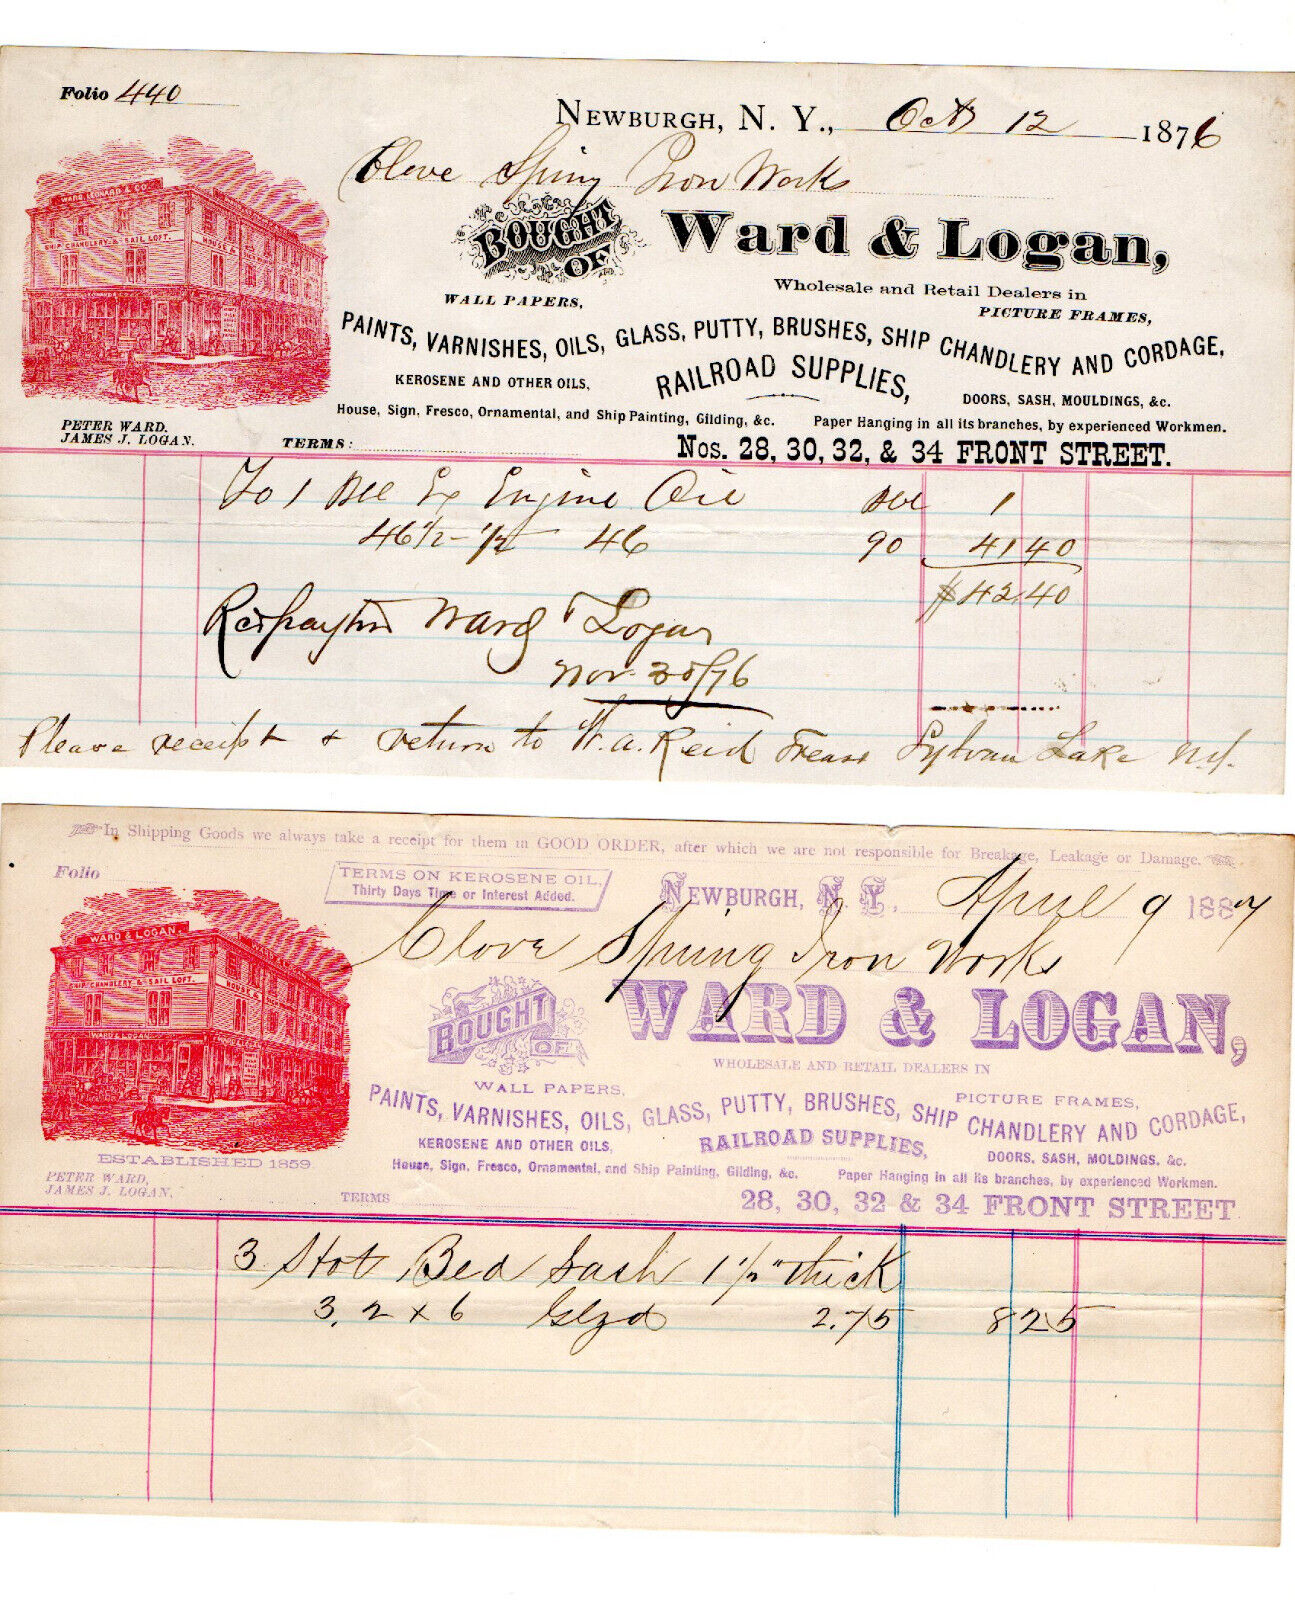 Folio 440
NEWBURGH, N. Y., Oct 12 1876
Clove Spring Iron Works
WARD, LEONARD & CO.
SHIP CHANDLERY & SAIL LOFT.
HOUSE &
BOUGHT OF
Ward & Logan,
Wholesale and Retail Dealers in
WALL PAPERS,
PICTURE FRAMES,
PAINTS, VARNISHES, OILS, GLASS, PUTTY, BRUSHES, SHIP CHANDLERY AND CORDAGE,
KEROSENE AND OTHER OILS,
RAILROAD SUPPLIES,
DOORS, SASH, MOULDINGS, &c.
House, Sign, Fresco, Ornamental, and Ship Painting, Gilding, &c.
Paper Hanging in all its branches, by experienced Workmen.
PETER WARD.
JAMES J. LOGAN.
TERMS:
Nos. 28, 30, 32, & 34 FRONT STREET.
To 1 Bbl Ex Engine Oil Bbl 1
46 1/2 - 1/2 46 90 41 40
$42.40
Recd payton Ward & Logan
Nov 30/76
Please receipt & return to W. A. Reid Treas Sylvan Lake N.Y.
In Shipping Goods we always take a receipt for them in GOOD ORDER, after which we are not responsible for Breakage, Leakage or Damage.
Folio
TERMS ON KEROSENE OIL,
Thirty Days Time or Interest Added.
NEWBURGH, N. Y. April 9 1887
Clove Spring Iron Works
WARD & LOGAN.
SHIP CHANDLERY & SAIL LOFT.
HOUSE &
BOUGHT OF
WARD & LOGAN,
WHOLESALE AND RETAIL DEALERS IN
WALL PAPERS,
PICTURE FRAMES,
PAINTS, VARNISHES, OILS, GLASS, PUTTY, BRUSHES, SHIP CHANDLERY AND CORDAGE,
KEROSENE AND OTHER OILS,
RAILROAD SUPPLIES,
DOORS, SASH, MOLDINGS, &c.
House, Sign, Fresco, Ornamental, and Ship Painting, Gilding, &c.
Paper Hanging in all its branches, by experienced Workmen.
ESTABLISHED 1859
PETER WARD,
JAMES J. LOGAN,
TERMS
28, 30, 32 & 34 FRONT STREET
3 Hot Bed Sash 1 1/2" thick
3, 2 x 6 Glzd 2.75 8 25